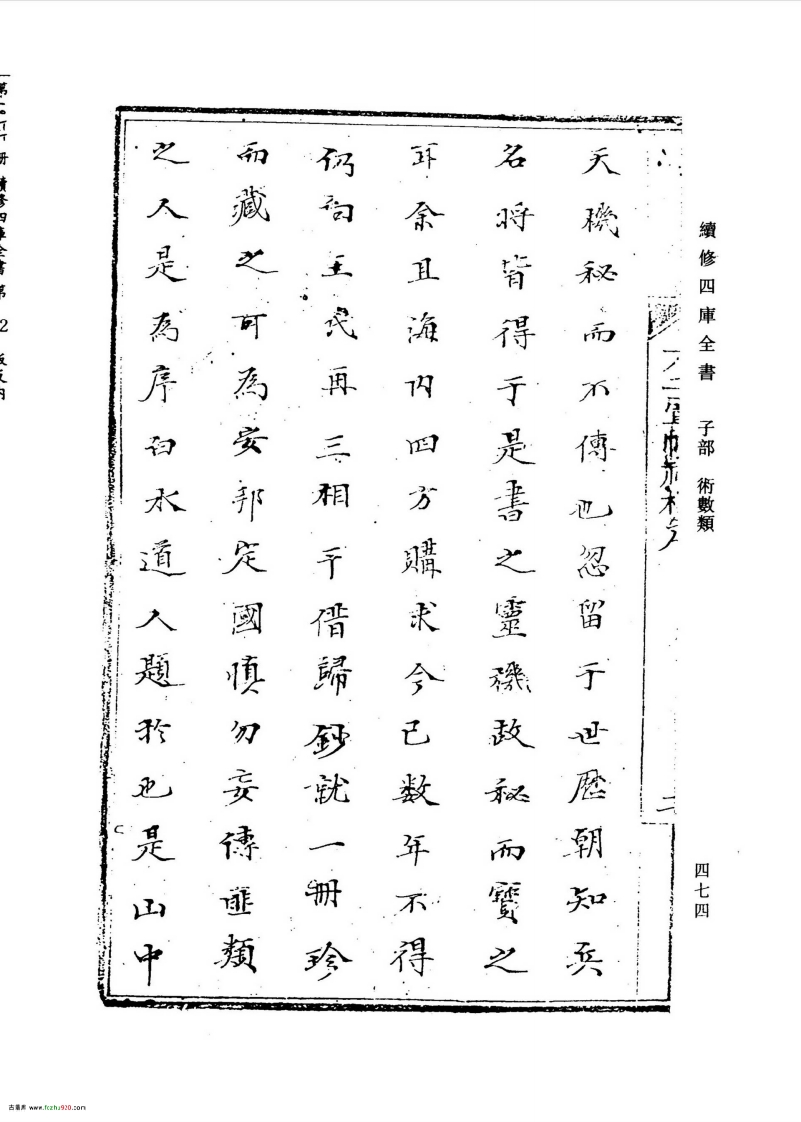 續修四庫全書 子部 術數類
四七四
二
天機秘而不傳也忽留于世歷朝知兵
名將皆得于是書之靈機故秘而寶之
耳余且海内四方購求今已数年不得
仍向王氏再三相干借歸鈔就一冊珍
而藏之可為安邦定國慎勿妄傳匪類
之人是為序白水道人題於也是山中
古籍库 www.fczhu920.com